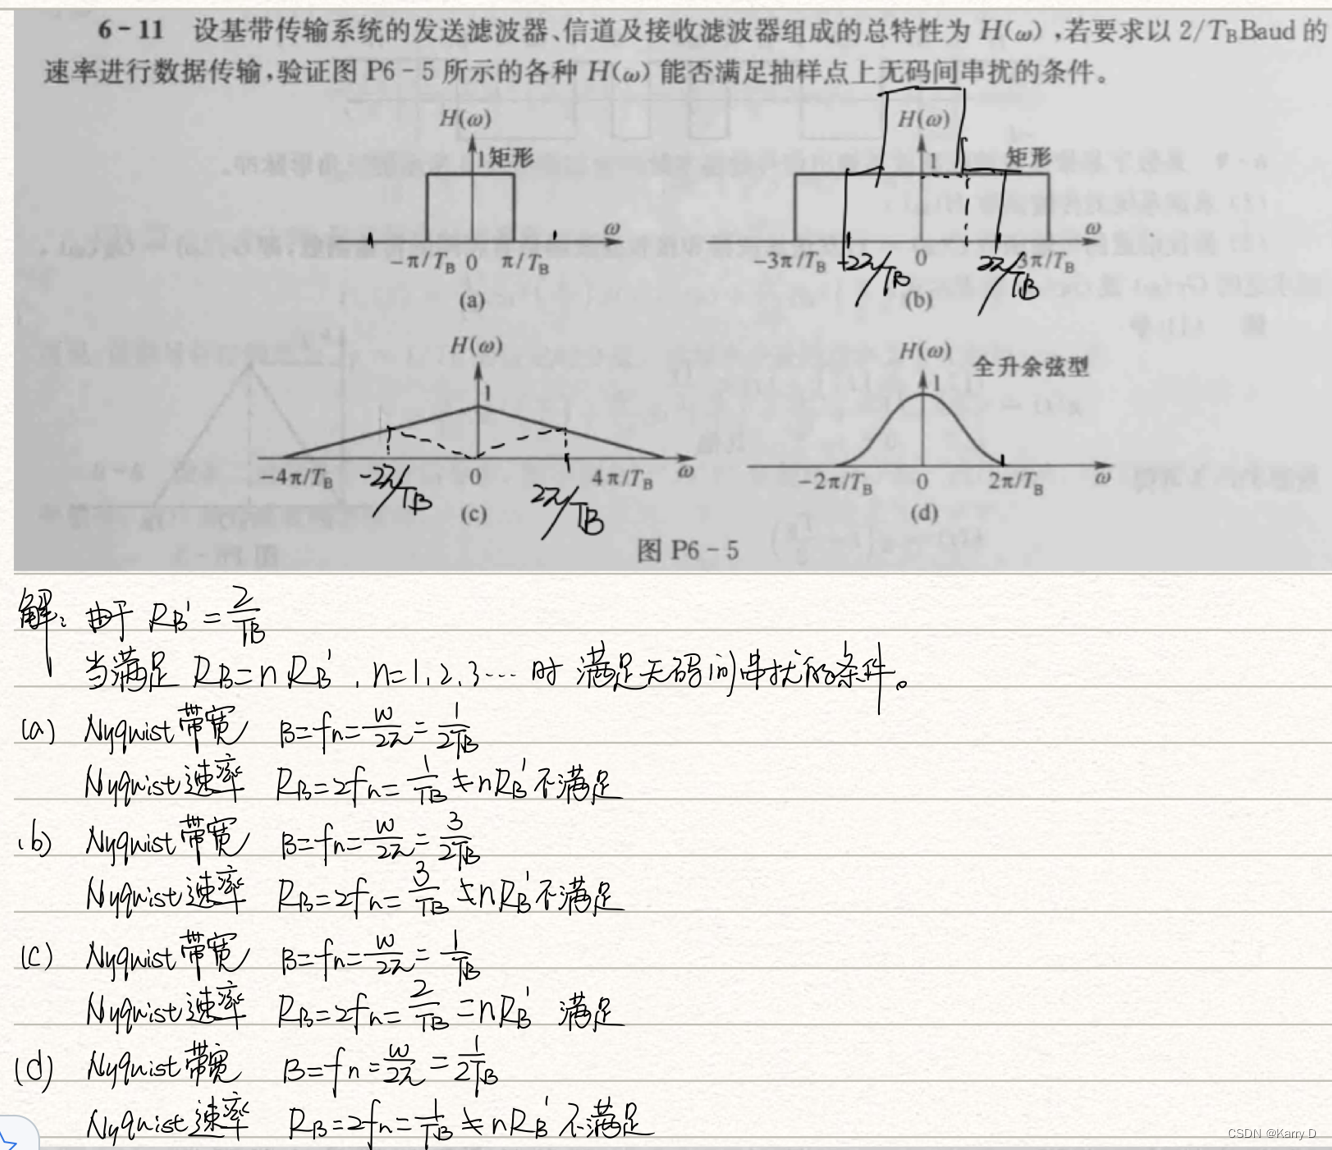 6-11 设基带传输系统的发送滤波器、信道及接收滤波器组成的总特性为 H(ω),若要求以 2/T_B Baud 的
速率进行数据传输,验证图 P6-5 所示的各种 H(ω) 能否满足抽样点上无码间串扰的条件。
H(ω) H(ω)
1 矩形 1 矩形
ω ω
-π/T_B 0 π/T_B -3π/T_B -2π/T_B 0 2π/T_B 3π/T_B
(a) (b)
H(ω) H(ω) 全升余弦型
1 1
-4π/T_B -2π/T_B 0 2π/T_B 4π/T_B ω -2π/T_B 0 2π/T_B ω
(c) (d)
图 P6-5
解: 由于 R_B' = 2/T_B
当满足 R_B = n R_B', n=1,2,3… 时 满足无码间串扰的条件。
(a) Nyquist 带宽 B=fn=w/2π=1/2T_B
Nyquist 速率 R_B=2fn=1/T_B≠nR_B' 不满足
(b) Nyquist 带宽 B=fn=w/2π=3/2T_B
Nyquist 速率 R_B=2fn=3/T_B≠nR_B' 不满足
(c) Nyquist 带宽 B=fn=w/2π=1/T_B
Nyquist 速率 R_B=2fn=2/T_B=nR_B' 满足
(d) Nyquist 带宽 B=fn=w/2π=1/2T_B
Nyquist 速率 R_B=2fn=1/T_B≠nR_B' 不满足
CSDN @Karry D